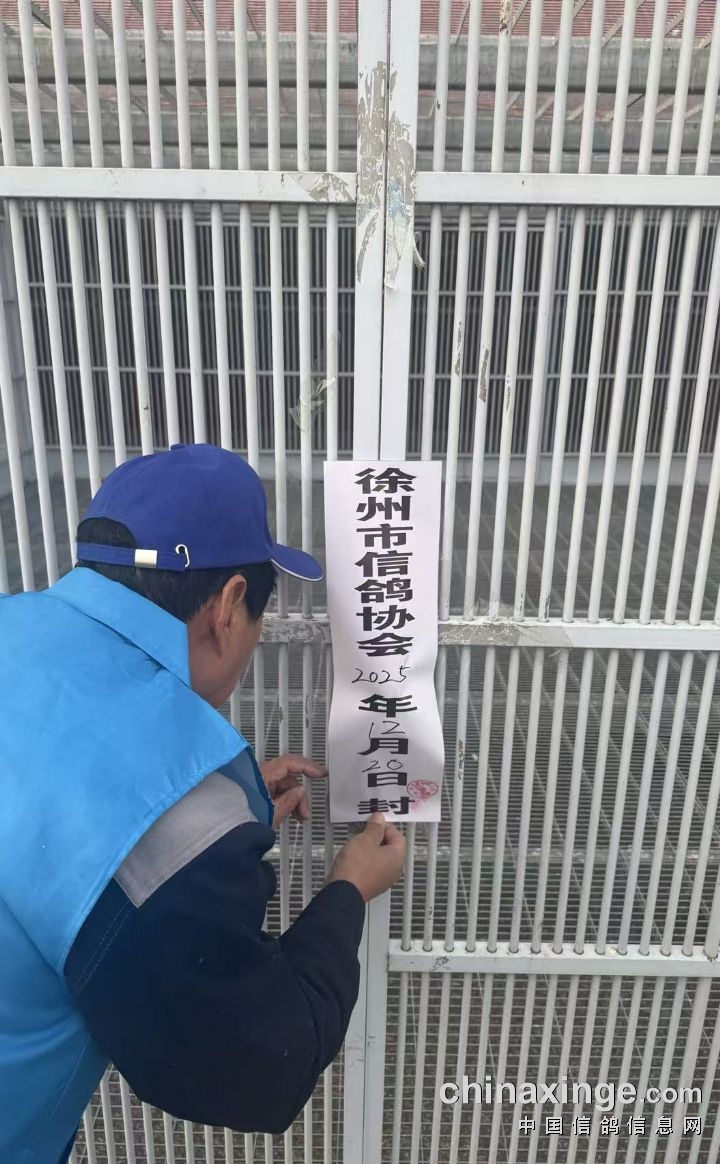 徐州市信鸽协会
2025年12月20日封
chinaxinge.com
中国信鸽信息网